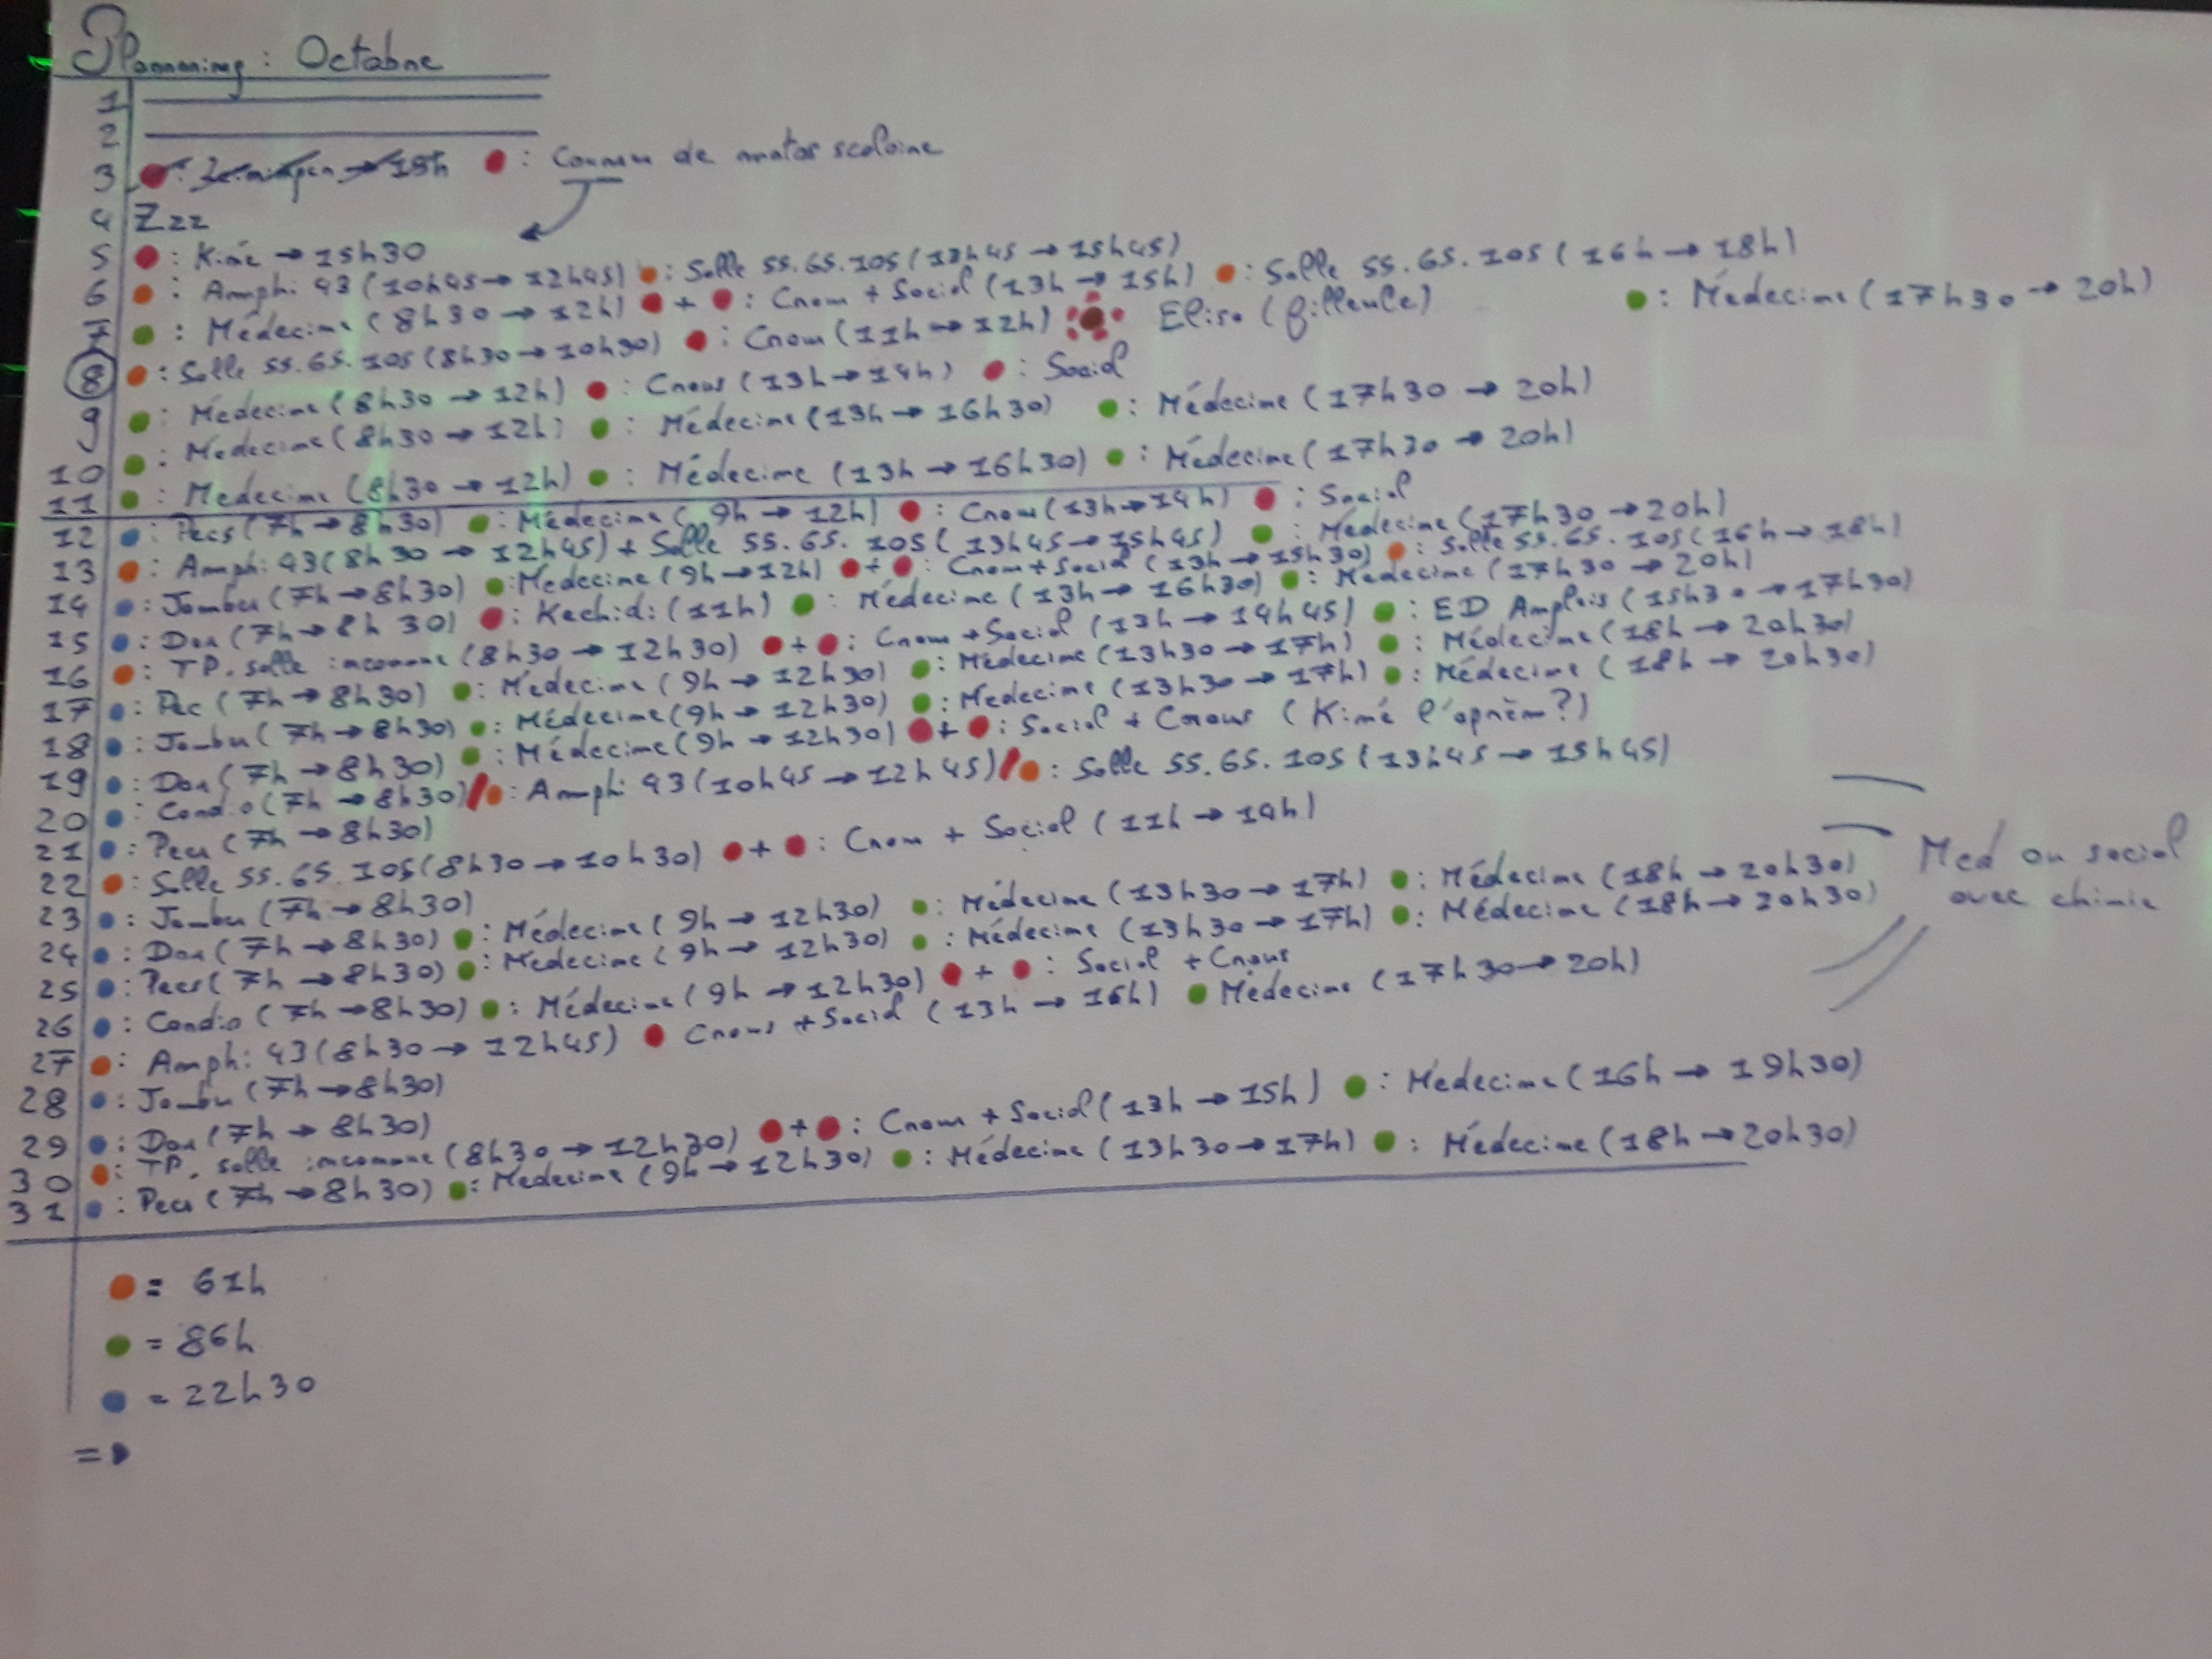 Planning : Octobre
1
2
3 → 18h : Courses de matos scolaire
4 Zzz
5 : Kiné → 15h30
6 : Amphi 43 (10h45 → 12h45) : Salle 55.65.105 (13h45 → 15h45) : Salle 55.65.105 (16h → 18h)
7 : Médecine (8h30 → 12h) + : Crous + Social (13h → 15h) : Médecine (17h30 → 20h)
8 : Salle 55.65.105 (8h30 → 10h30) : Crous (11h → 12h) Elisa (filleule)
9 : Médecine (8h30 → 12h) : Crous (13h → 14h) : Social
10 : Médecine (8h30 → 12h) : Médecine (13h → 16h30) : Médecine (17h30 → 20h)
11 : Médecine (8h30 → 12h) : Médecine (13h → 16h30) : Médecine (17h30 → 20h)
12 : Pecs (7h → 8h30) : Médecine (9h → 12h) : Crous (13h → 14h) : Social
13 : Amphi 43 (8h30 → 12h45) + Salle 55.65.105 (13h45 → 15h45) : Médecine (17h30 → 20h)
14 : Jambes (7h → 8h30) : Médecine (9h → 12h) + : Crous + Social (13h → 15h30) : Salle 55.65.105 (16h → 18h)
15 : Dos (7h → 8h30) : Kechidi (11h) : Médecine (13h → 16h30) : Médecine (17h30 → 20h)
16 : TP. salle inconnue (8h30 → 12h30) + : Crous + Social (13h → 14h45) : ED Anglais (15h30 → 17h30)
17 : Pec (7h → 8h30) : Médecine (9h → 12h30) : Médecine (13h30 → 17h) : Médecine (18h → 20h30)
18 : Jambes (7h → 8h30) : Médecine (9h → 12h30) : Médecine (13h30 → 17h) : Médecine (18h → 20h30)
19 : Dos (7h → 8h30) : Médecine (9h → 12h30) + : Social + Crous (Kiné l'aprèm ?)
20 : Cardio (7h → 8h30) / : Amphi 43 (10h45 → 12h45) / : Salle 55.65.105 (13h45 → 15h45)
21 : Pecs (7h → 8h30)
22 : Salle 55.65.105 (8h30 → 10h30) + : Crous + Social (11h → 14h)
23 : Jambes (7h → 8h30)
24 : Dos (7h → 8h30) : Médecine (9h → 12h30) : Médecine (13h30 → 17h) : Médecine (18h → 20h30)
25 : Pecs (7h → 8h30) : Médecine (9h → 12h30) : Médecine (13h30 → 17h) : Médecine (18h → 20h30)
26 : Cardio (7h → 8h30) : Médecine (9h → 12h30) + : Social + Crous
27 : Amphi 43 (8h30 → 12h45) Crous + Social (13h → 16h) Médecine (17h30 → 20h)
28 : Jambes (7h → 8h30)
29 : Dos (7h → 8h30)
30 : TP. salle inconnue (8h30 → 12h30) + : Crous + Social (13h → 15h) : Médecine (16h → 19h30)
31 : Pecs (7h → 8h30) : Médecine (9h → 12h30) : Médecine (13h30 → 17h) : Médecine (18h → 20h30)
Med ou social
avec chimie
= 61h
= 86h
= 22h30
=>